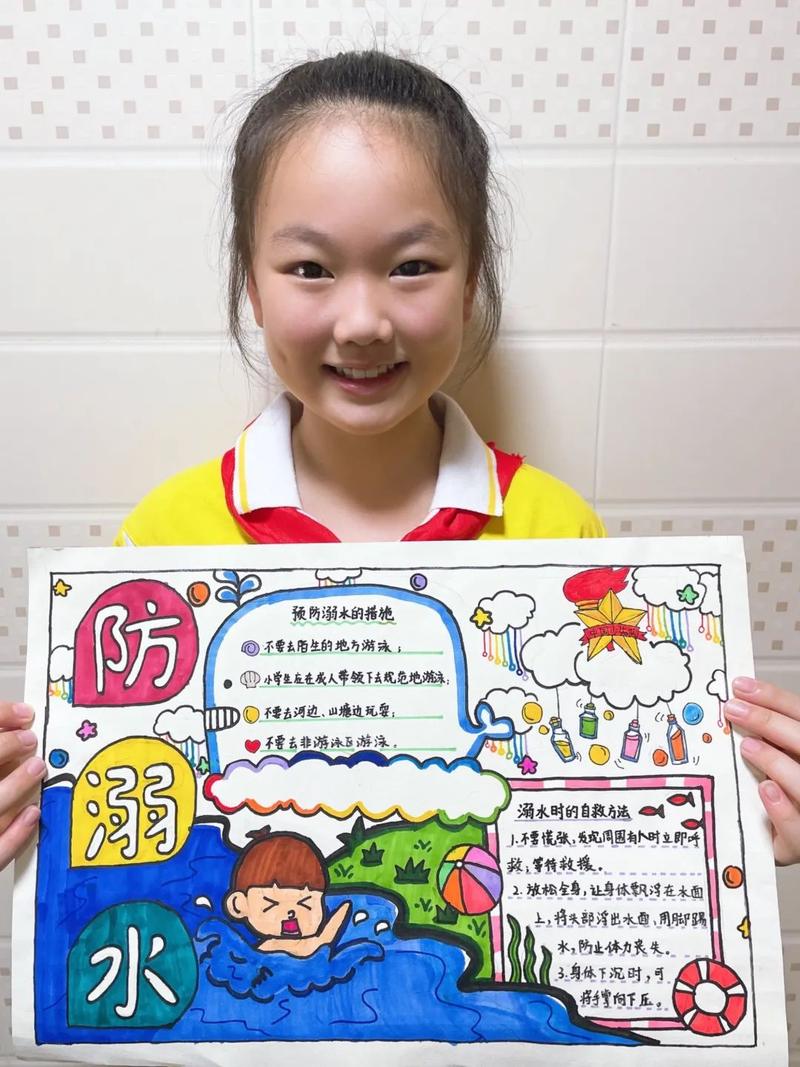 防
溺
水
预防溺水的措施
不要去陌生的地方游泳；
小学生应在成人带领下去规范地游泳；
不要去河边、山塘边玩耍；
不要去非游泳区游泳。
溺水时的自救方法
1.不要慌张，发现周围有人时立即呼
救；等待救援。
2.放松全身，让身体飘浮在水面
上，将头部浮出水面，用脚踢
水，防止体力丧失。
3.身体下沉时，可
将手掌向下压。